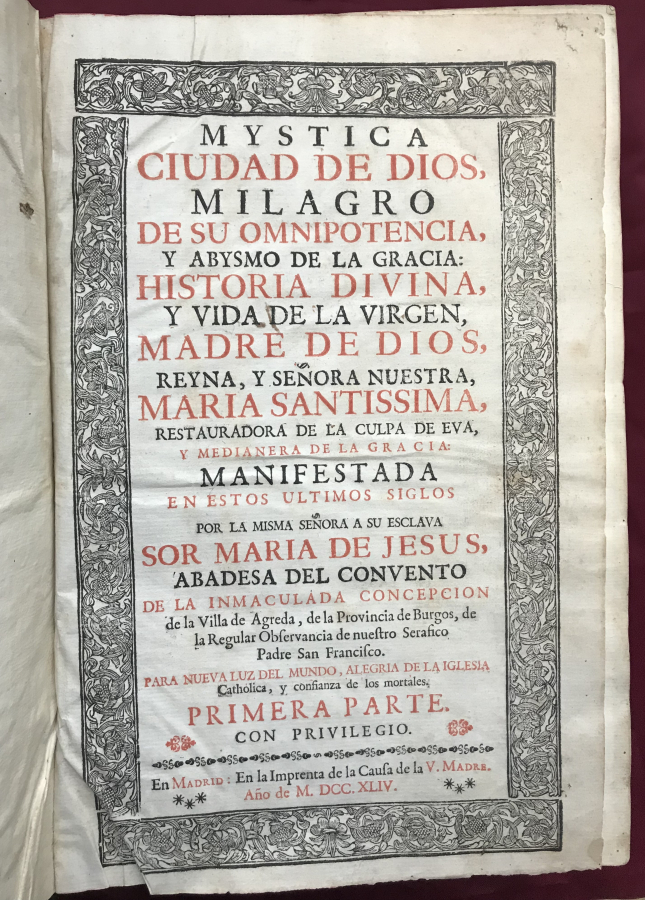 MYSTICA
CIUDAD DE DIOS,
MILAGRO
DE SU OMNIPOTENCIA,
Y ABYSMO DE LA GRACIA:
HISTORIA DIVINA,
Y VIDA DE LA VIRGEN,
MADRE DE DIOS,
REYNA, Y SEÑORA NUESTRA,
MARIA SANTISSIMA,
RESTAURADORA DE LA CULPA DE EVA,
Y MEDIANERA DE LA GRACIA:
MANIFESTADA
EN ESTOS ULTIMOS SIGLOS
POR LA MISMA SEÑORA A SU ESCLAVA
SOR MARIA DE JESUS,
ABADESA DEL CONVENTO
DE LA INMACULADA CONCEPCION
de la Villa de Agreda, de la Provincia de Burgos, de
la Regular Obſervancia de nueſtro Serafico
Padre San Franciſco.
PARA NUEVA LUZ DEL MUNDO, ALEGRIA DE LA IGLESIA
Catholica, y confianza de los mortales.
PRIMERA PARTE.
CON PRIVILEGIO.
En MADRID: En la Imprenta de la Cauſa de la V. MADRE.
Año de M. DCC. XLIV.